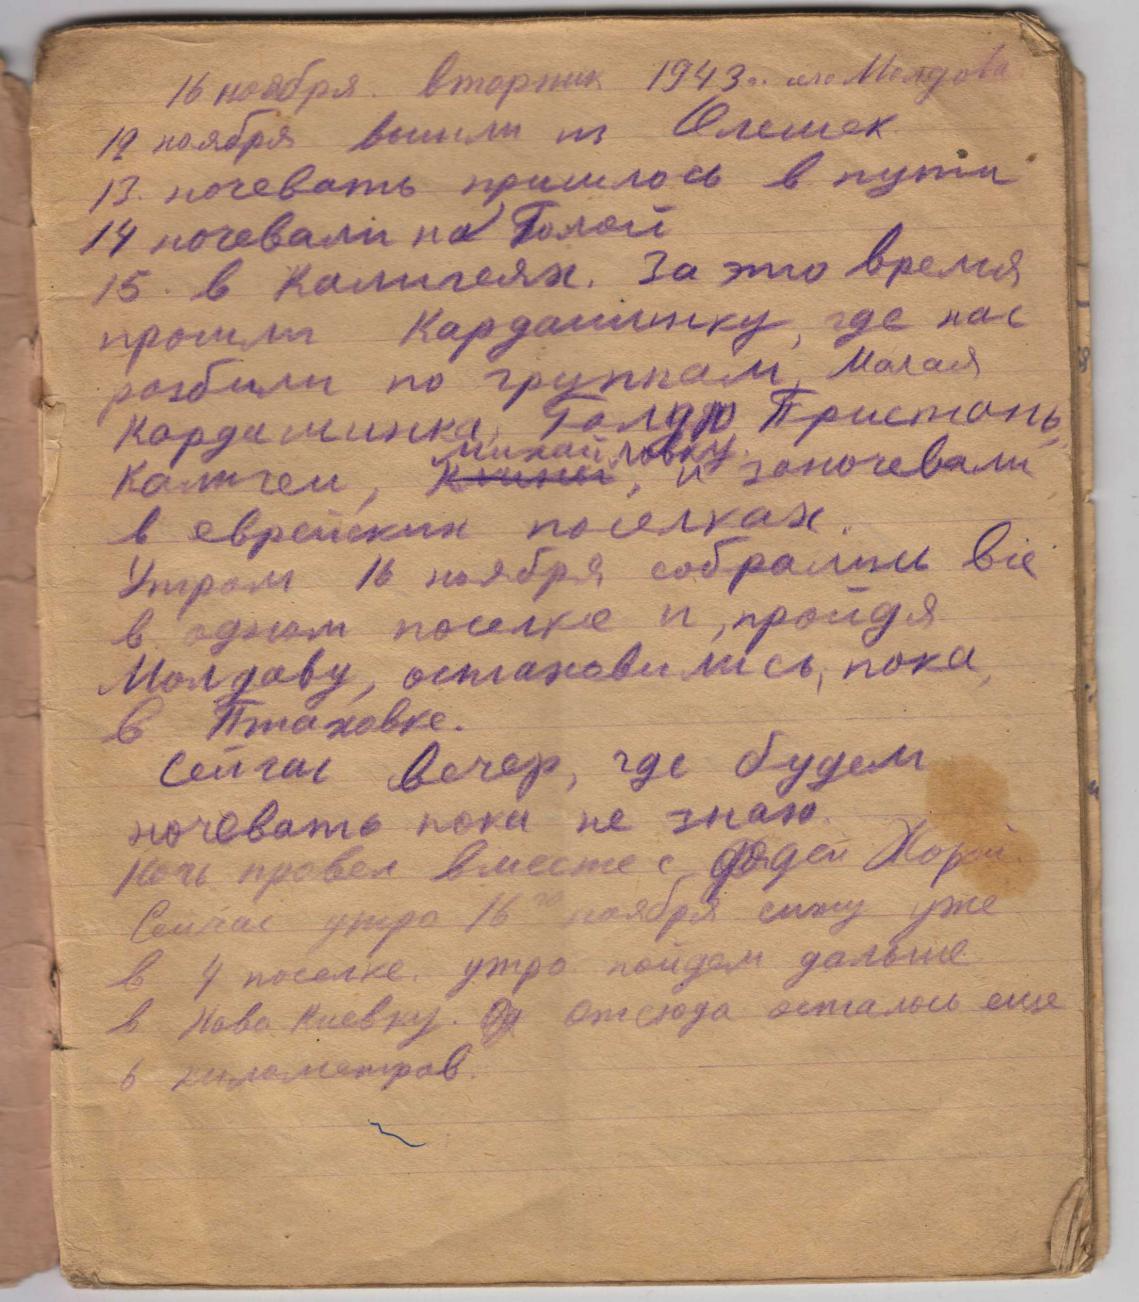 16 ноября. вторник 1943 г. село Молдова
12 ноября вышли из Олешек
13. ночевать пришлось в пути
14 ночевали на Голой
15. в Каличеях. За это время
прошли Кардашинку, где нас
розбили по группам, Малая
Кардашинка, Голую Пристань,
Каличеи, Михайловку, и заночевали
в еврейских поселках.
Утром 16 ноября собрались все
в одном поселке и, пройдя
Молдаву, остановились, пока,
в Птаховке.
Сейчас вечер, где будем
ночевать пока не знаю.
Ночь провел вместе с дядей
Сейчас утро 16го ноября сижу уже
в 4 поселке. утро пойдем дальше
в Ново Киевку. Отсюда осталось еще
6 километров.